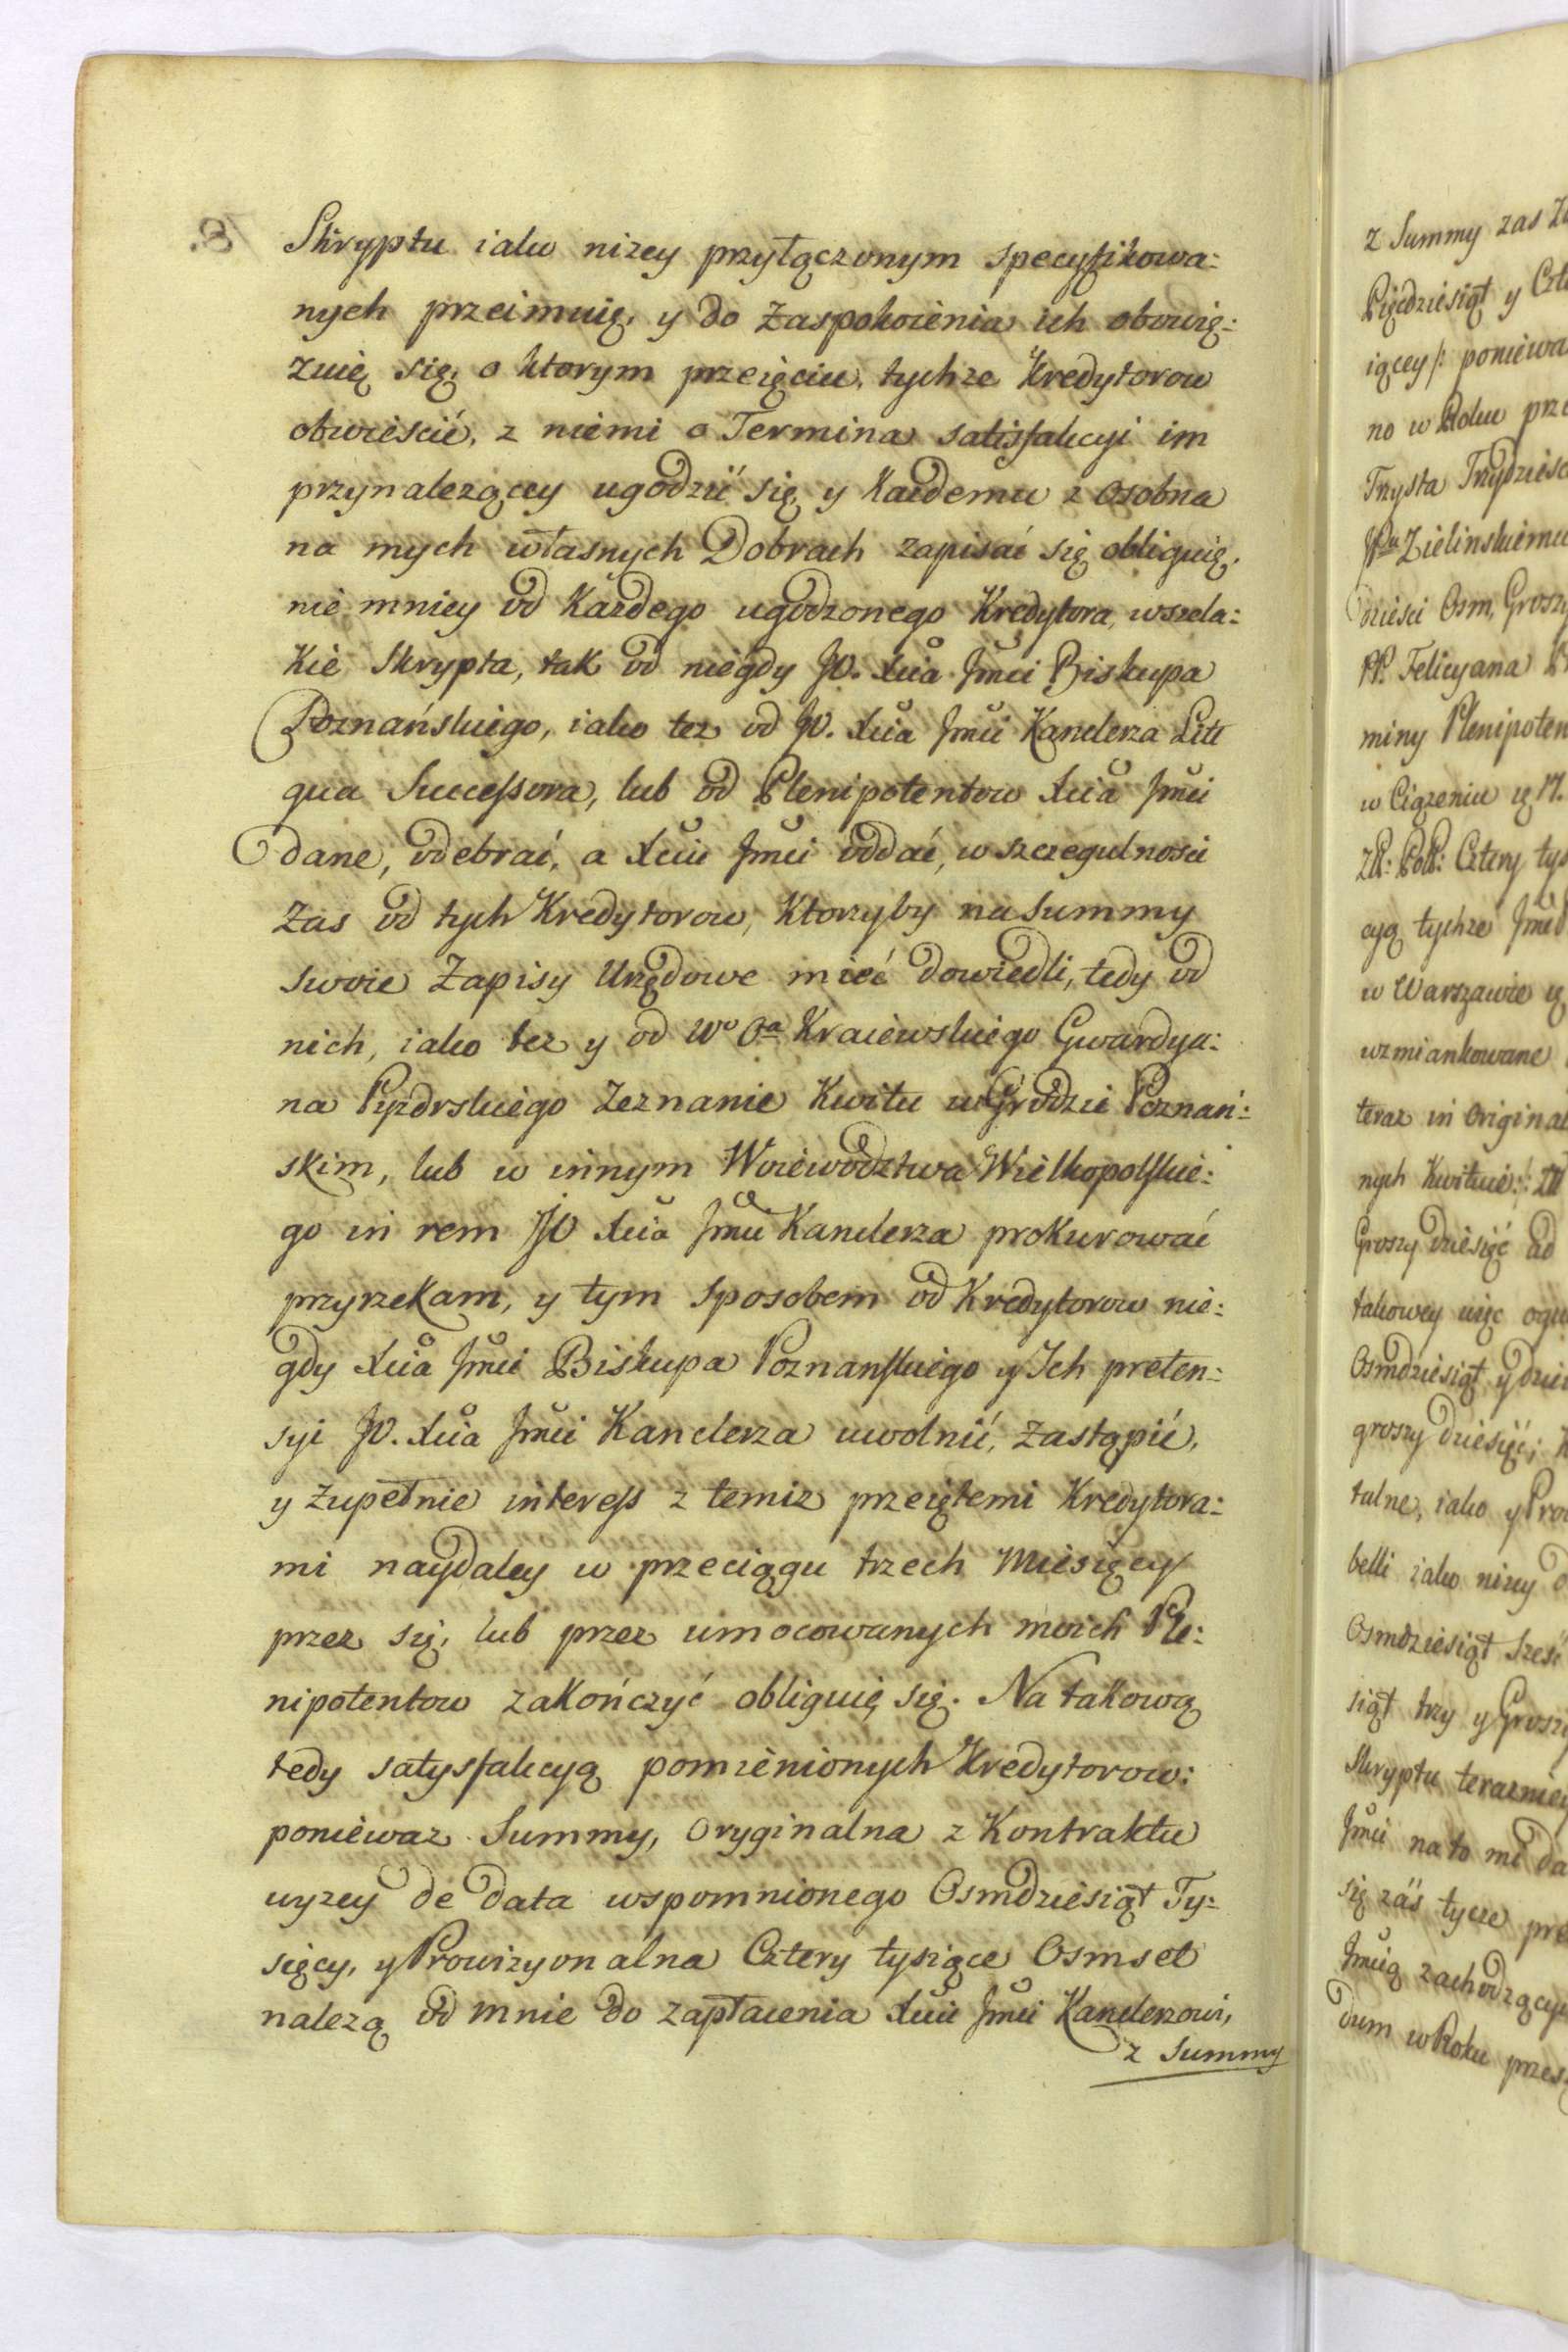 Skryptu iako nizey przyłączonym specyfikowa:
nych przeimuię, y do Zaspokoienia ich obowię:
zuię się, o ktorym przeięciu, tychze Kredytorow
obwieścić, z niemi o Termina satisfakcyi im
przynalezącey ugodzić się, y Kazdemu z osobna
na mych własnych Dobrach zapisać się obliguię,
nie mniey od Kazdego ugodzonego Kredytora, wszela:
kie Skrypta, tak od niegdy JO. Xcia Jmci Biskupa
Poznańskiego, iako tez od JO. Xcia Jmci Kanclerza Litt
qua Successora, lub od Plenipotentow Xcia Jmci
dane, odebrać, a Xciu Jmci oddać, w szczegulności
Zas od tych Kredytorow, Ktorzyby na Summy
swoie Zapisy Urzędowe mieć dowiedli, tedy od
nich, iako tez y od Wo Oa Kraiewskiego Gwardya:
na Pyzdrskiego Zeznanie Kwitu w Grodzie Poznań:
skim, lub w innym Woiewodztwa Wielkopolskie:
go in rem JO Xcia Jmci Kanclerza prokurować
przyrzekam, y tym sposobem od Kredytorow nie:
gdy Xcia Jmci Biskupa Poznanskiego y Ich preten:
syi JO. Xcia Jmci Kanclerza uwolnić, Zastąpić,
y Zupełnie interess z temiz przeiętemi Kredytora:
mi naydaley w przeciągu trzech Miesięcy
przez się, lub przez umocowanych moich Ple:
nipotentow zakończyć obliguię się. Na takową
tedy satysfakcyą pomienionych Kredytorow:
poniewaz Summy, Oryginalna z Kontraktu
wyzey de data wspomnionego Osmdziesiąt Ty:
sięcy, y Prowizyonalna Cztery tysiące Osmset
nalezą od mnie do zapłacenia Xciu Jmci Kanclerzowi,
z Summy
z Summy zas
Pięćdziesiąt y
iącey/: poniewa
no w Roku prze
Trzysta Trzydzieśc
Zielinskiemu
dzieści Osm, Groszy
PP. Felicyana
miny Plenipoten
w Ciązeniu
Cztery tys
cyą tychze
w Warszawie
wzmiankowane
teraz in Original
nych Kwituie:
Groszy dziesięć ad
takowey więc ogu
Osmdziesiąt y dzie
groszy dziesięć;
talne, iako y Pro
belli iako nizey
Osmdziesiąt Sześć
siąt trzy y Groszy
Skryptu teraznie
Jmci na to mi da
się zaś tycze prz
zachodzącyc
dum w Roku przes